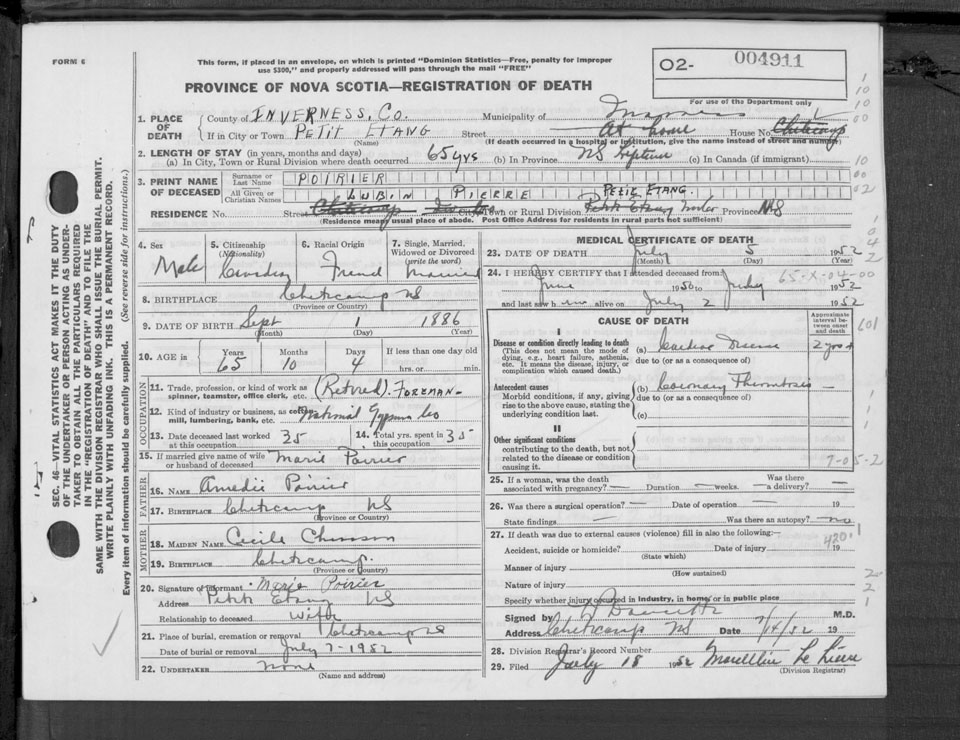 FORM 6
This form, if placed in an envelope, on which is printed "Dominion Statistics—Free, penalty for improper
use $300," and properly addressed will pass through the mail "FREE"
O2- 004911
For use of the Department only
PROVINCE OF NOVA SCOTIA—REGISTRATION OF DEATH
1. PLACE OF DEATH
County of INVERNESS, Co. Municipality of Inverness
If in City or Town PETIT ETANG Street At home House No. Cheticamp
(Name) (If death occurred in a hospital or institution, give the name instead of street and number)
2. LENGTH OF STAY (in years, months and days)
(a) In City, Town or Rural Division where death occurred 65 yrs (b) In Province NS (c) In Canada (if immigrant)
3. PRINT NAME OF DECEASED
Surname or Last Name POIRIER
All Given or Christian Names LUBIN PIERRE
PETIT ETANG.
RESIDENCE No. Street Cheticamp City, Town or Rural Division Petit Etang Province NS
(Residence means usual place of abode. Post Office Address for residents in rural parts not sufficient)
4. Sex Male
5. Citizenship (Nationality)
6. Racial Origin French
7. Single, Married, Widowed or Divorced (write the word) Married
8. BIRTHPLACE Cheticamp NS
(Province or Country)
9. DATE OF BIRTH Sept 1 1886
(Month) (Day) (Year)
10. AGE in Years 65 Months 10 Days 4 If less than one day old
hrs. or min.
OCCUPATION
11. Trade, profession, or kind of work as spinner, teamster, office clerk, etc. (Retired). FOREMAN-
12. Kind of industry or business, as cotton mill, lumbering, bank, etc. National Gypsum Co
13. Date deceased last worked at this occupation 35
14. Total yrs. spent in this occupation 35
15. If married give name of wife or husband of deceased Marie Poirier
FATHER
16. NAME Amedie Poirier
17. BIRTHPLACE Cheticamp NS
(Province or Country)
MOTHER
18. MAIDEN NAME Cecile Chiasson
19. BIRTHPLACE Cheticamp.
(Province or Country)
20. Signature of informant Marie Poirier
Address Petit Etang NS
Relationship to deceased Wife
21. Place of burial, cremation or removal Cheticamp NS
Date of burial or removal July 7-1952
22. UNDERTAKER None
(Name and address)
MEDICAL CERTIFICATE OF DEATH
23. DATE OF DEATH July 5 1952
(Month) (Day) (Year)
24. I HEREBY CERTIFY that I attended deceased from:
65-X-04-00
June 1950 to July 1952
and last saw him alive on July 2 1952
CAUSE OF DEATH
Approximate interval between onset and death
I
Disease or condition directly leading to death (a) Cardiac Disease 2 yrs +
(This does not mean the mode of dying, e.g., heart failure, asthenia, etc. It means the disease, injury, or complication which caused death.)
due to (or as a consequence of)
Antecedent causes (b) Coronary Thrombosis
Morbid conditions, if any, giving rise to the above cause, stating the underlying condition last.
due to (or as a consequence of)
(c)
II
Other significant conditions contributing to the death, but not related to the disease or condition causing it.
7-05-2
25. If a woman, was the death associated with pregnancy? Duration weeks. Was there a delivery?
26. Was there a surgical operation? Date of operation 19
State findings Was there an autopsy? no
27. If death was due to external causes (violence) fill in also the following:-
4201
Accident, suicide or homicide? Date of injury 19
(State which)
Manner of injury
(How sustained)
Nature of injury
Specify whether injury occurred in industry, in home, or in public place
Signed by M.D.
Address Cheticamp NS Date 7/14/52 19
28. Division Registrar's Record Number
29. Filed July 18 1952
(Division Registrar)
SEC. 46—VITAL STATISTICS ACT MAKES IT THE DUTY
OF THE UNDERTAKER OR PERSON ACTING AS UNDER-
TAKER TO OBTAIN ALL THE PARTICULARS REQUIRED
IN THE "REGISTRATION OF DEATH" AND TO FILE THE
SAME WITH THE DIVISION REGISTRAR WHO SHALL ISSUE THE BURIAL PERMIT.
WRITE PLAINLY WITH UNFADING INK. THIS IS A PERMANENT RECORD.
Every item of information should be carefully supplied. (See reverse side for instructions.)